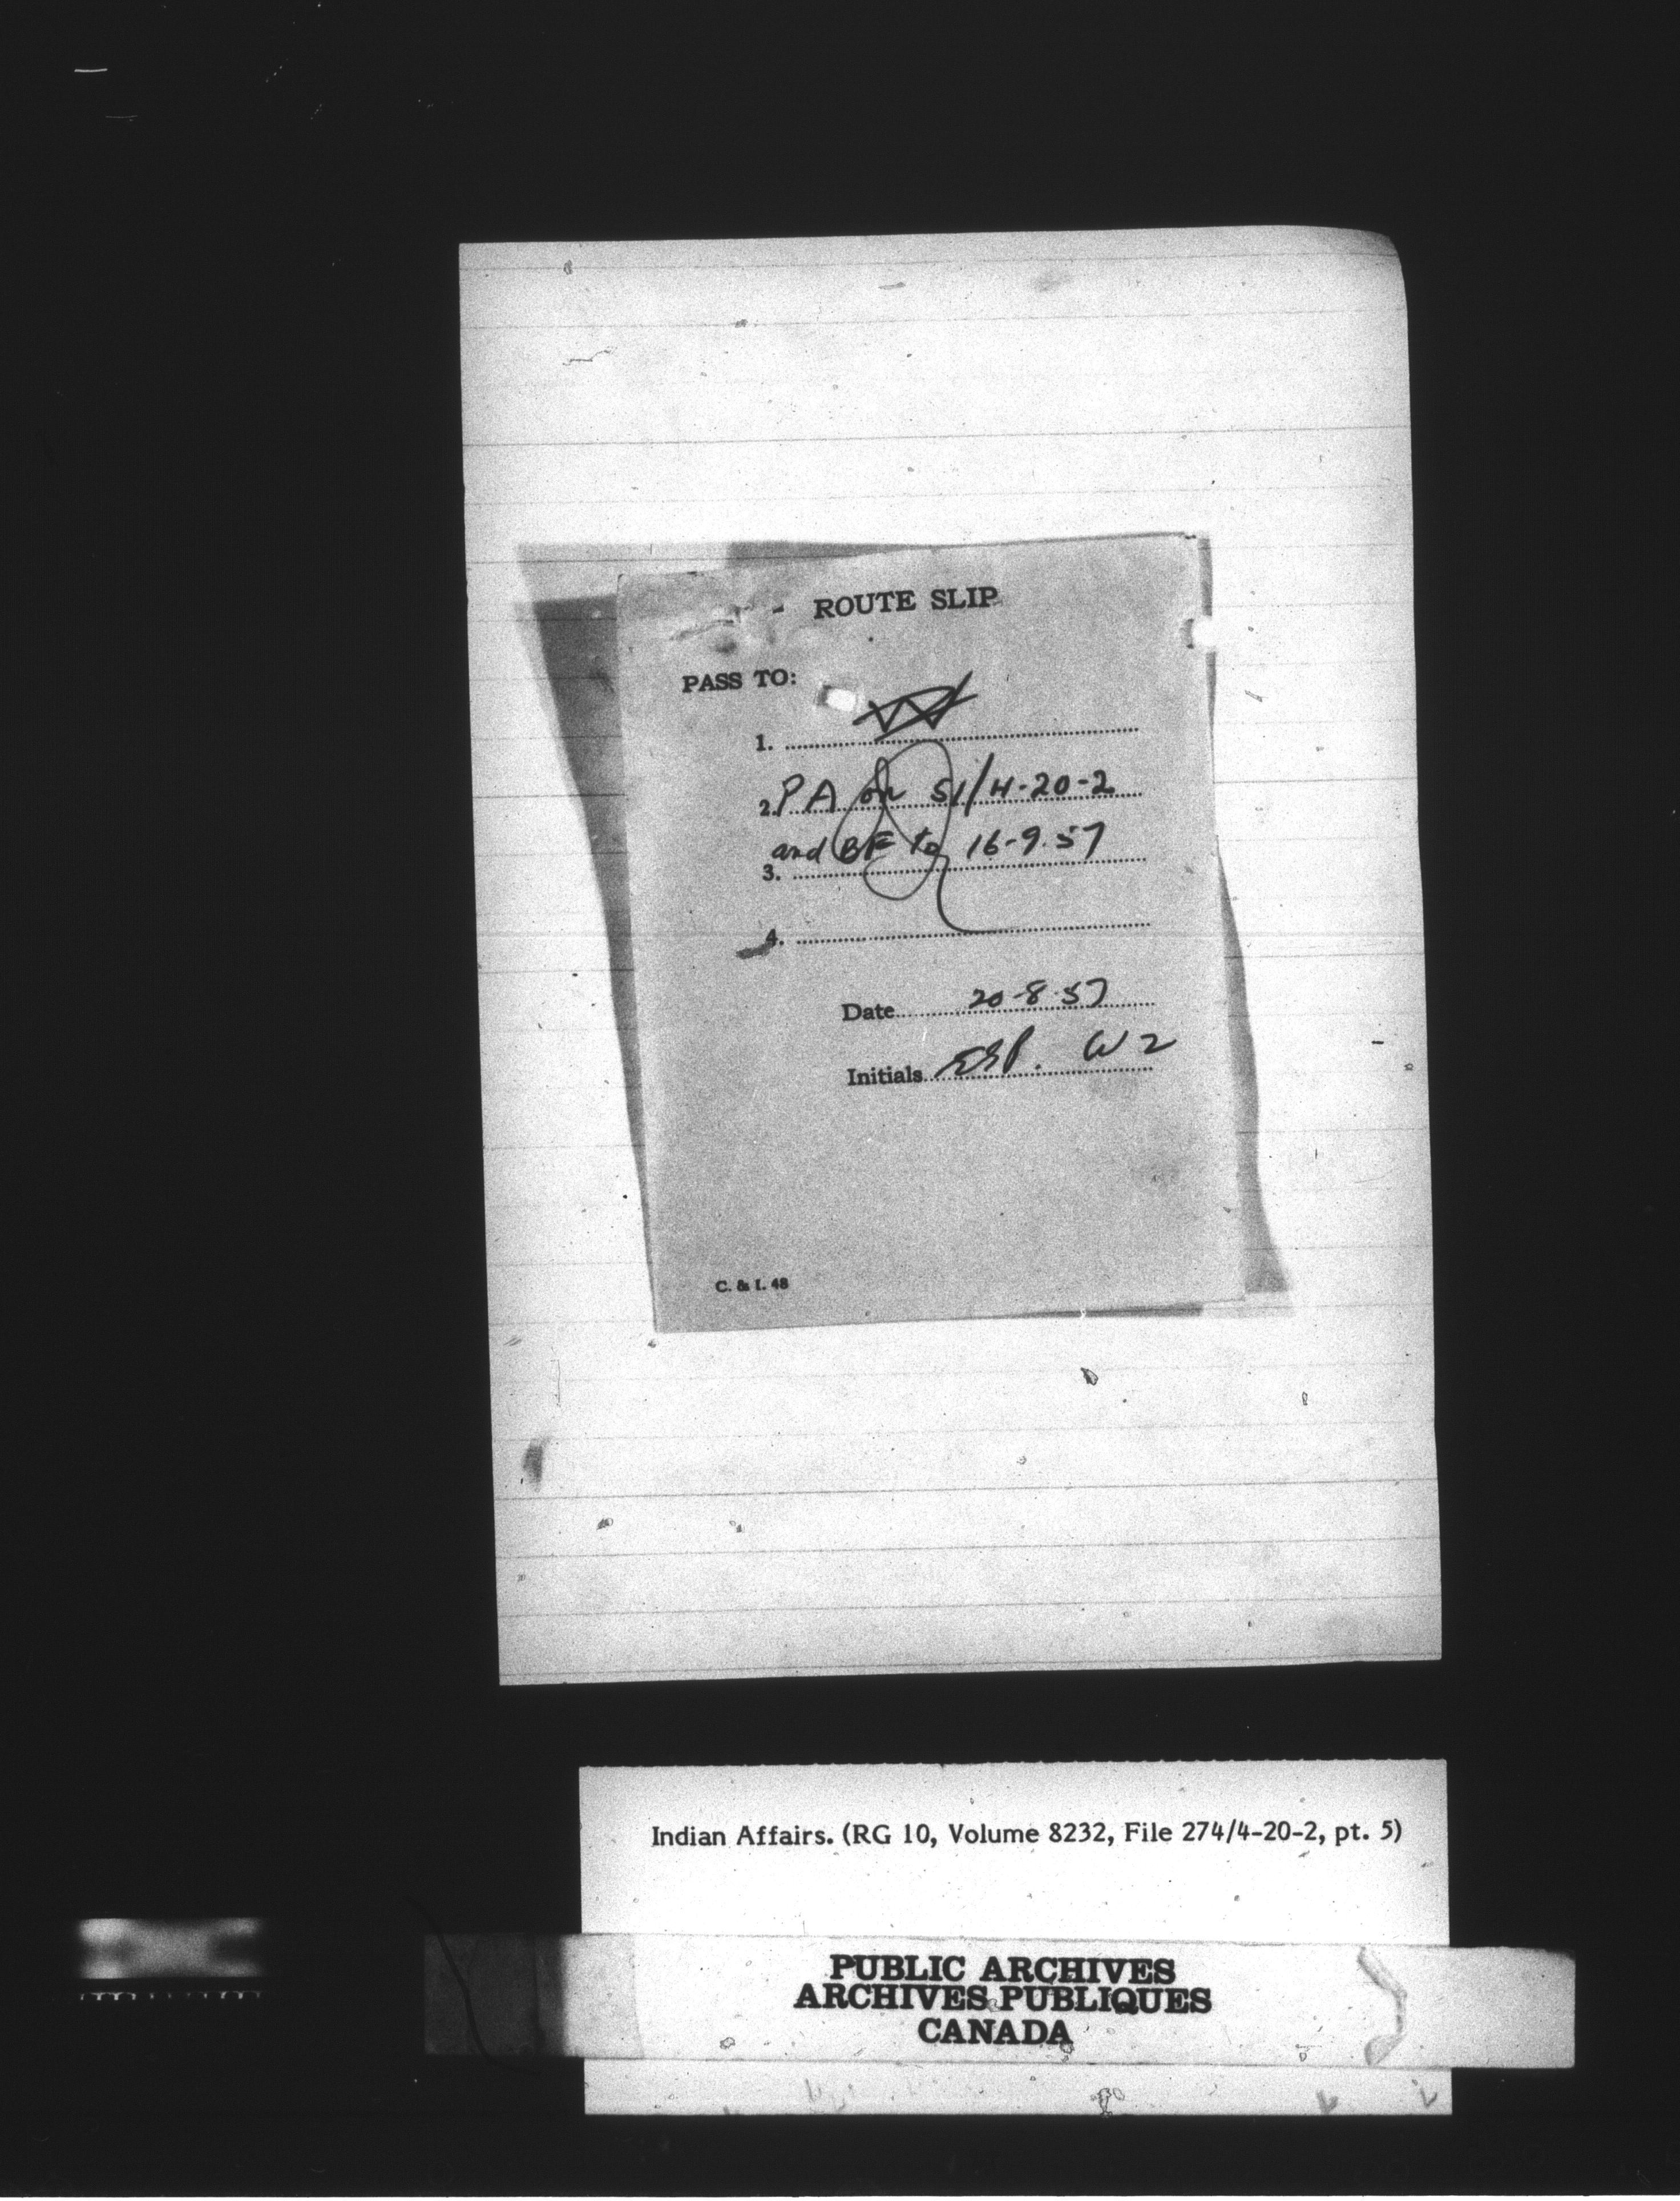 ROUTE SLIP
PASS TO:
1.
2. PA on 51/4-20-2
and BF to 16-9-57
3.
4.
Date 20-8-57
Initials W2
C. & I. 48
Indian Affairs. (RG 10, Volume 8232, File 274/4-20-2, pt. 5)
PUBLIC ARCHIVES
ARCHIVES PUBLIQUES
CANADA